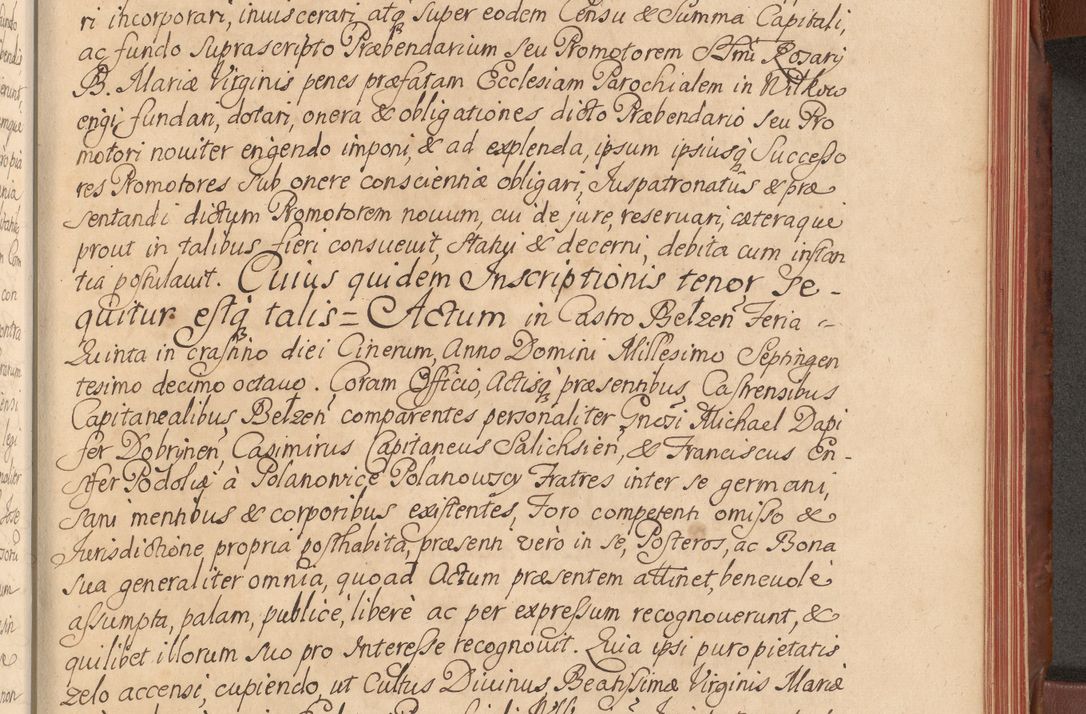 ri incorporari, inuiscerari atq̃ super eodem Censu & Summa Capitali,
ac fundo suprascripto Præbendarium seu Promotorem SSmi Rosarij
B. Mariæ Virginis penes præfatam Ecclesiam Parochialem in Witkow
erigi fundari, dotari, onera & obligationes dicto Præbendario seu Pro
motori noviter erigendo imponi, & ad explenda, ipsum ipsiusq̃ Successo
res Promotores sub onere conscientiæ obligari, Juspatronatûs & præ
sentandi dictum Promotorem novum, cui de jure, reservari, cæteraque
prout in talibus fieri consuevit, statui & decerni, debita cum instan
tia postulavit. Cuius quidem Inscriptionis tenor se-
quitur estq̃ talis = Actum in Castro Bełzen Feria
Quinta in crastino diei Cinerum, Anno Domini Millesimo Septingen
tesimo decimo octavo. Coram Officio, Actisq̃ præsentibus, Castrensibus
Capitanealibus, Bełzen, comparentes personaliter Gnosi Michael Dapi
fer Dobrynen, Casimirus Capitaneus Salichsien, & Franciscus En-
sifer Podolię à Polanonice Polanowscy Fratres inter se germani,
sani mentibus & corporibus existentes, Foro competenti omisso &
Jurisdictione, propria posthabita, præsenti verò in se, Posteros, ac Bona
sua generaliter omnia, quoad Actum præsentem attinet, benevolè
assumpta, palam, publicè, liberè ac per expressum recognoverunt, &
quilibet illorum suo pro Interesse recognovit. Quia ipsi puro pietatis
zelo accensi, cupiendo, ut Cultus Divinus, Beatissimæ Virginis Mariæ